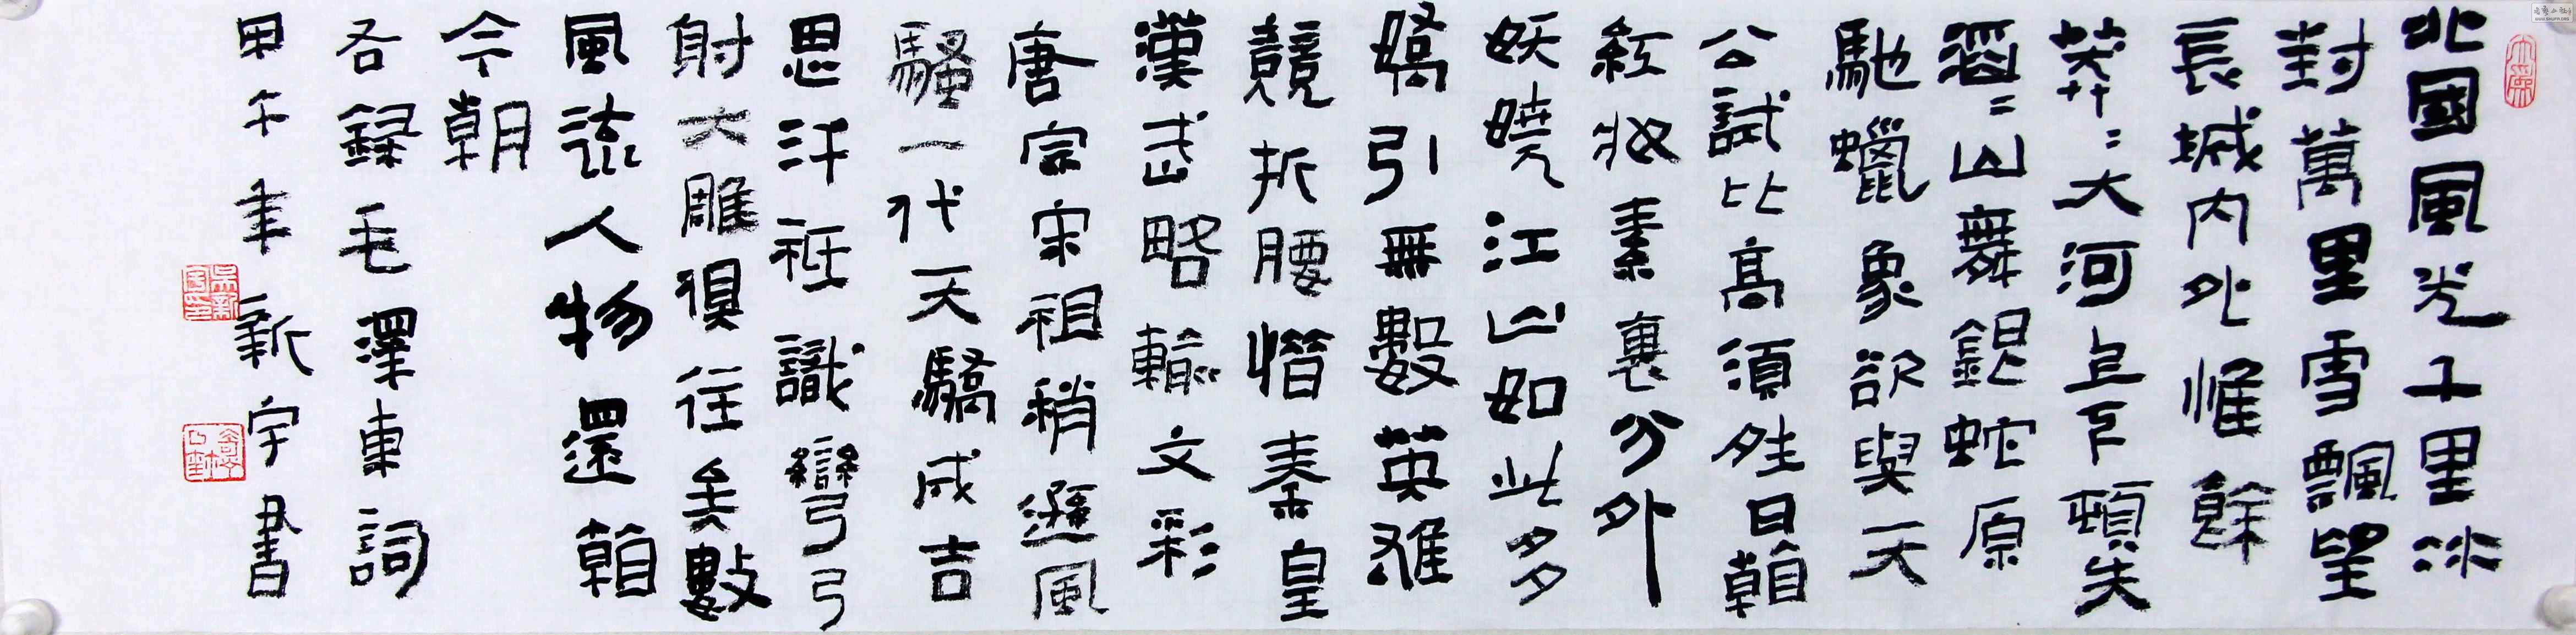 北國風光千里冰
封萬里雪飄望
長城内外惟餘
莽〻大河上下頓失
滔〻山舞銀蛇原
馳蠟象欲與天
公試比高須夝日看
紅妝素裹分外
妖曉江山如此多
嬌引無數英雄
競折腰惜秦皇
漢武略輸文彩
唐宗宋祖稍遜風
騷一代天驕成吉
思汗祗識彎弓
射大雕俱往矣數
風流人物還看
今朝
右錄毛澤東詞
甲午年新宇書